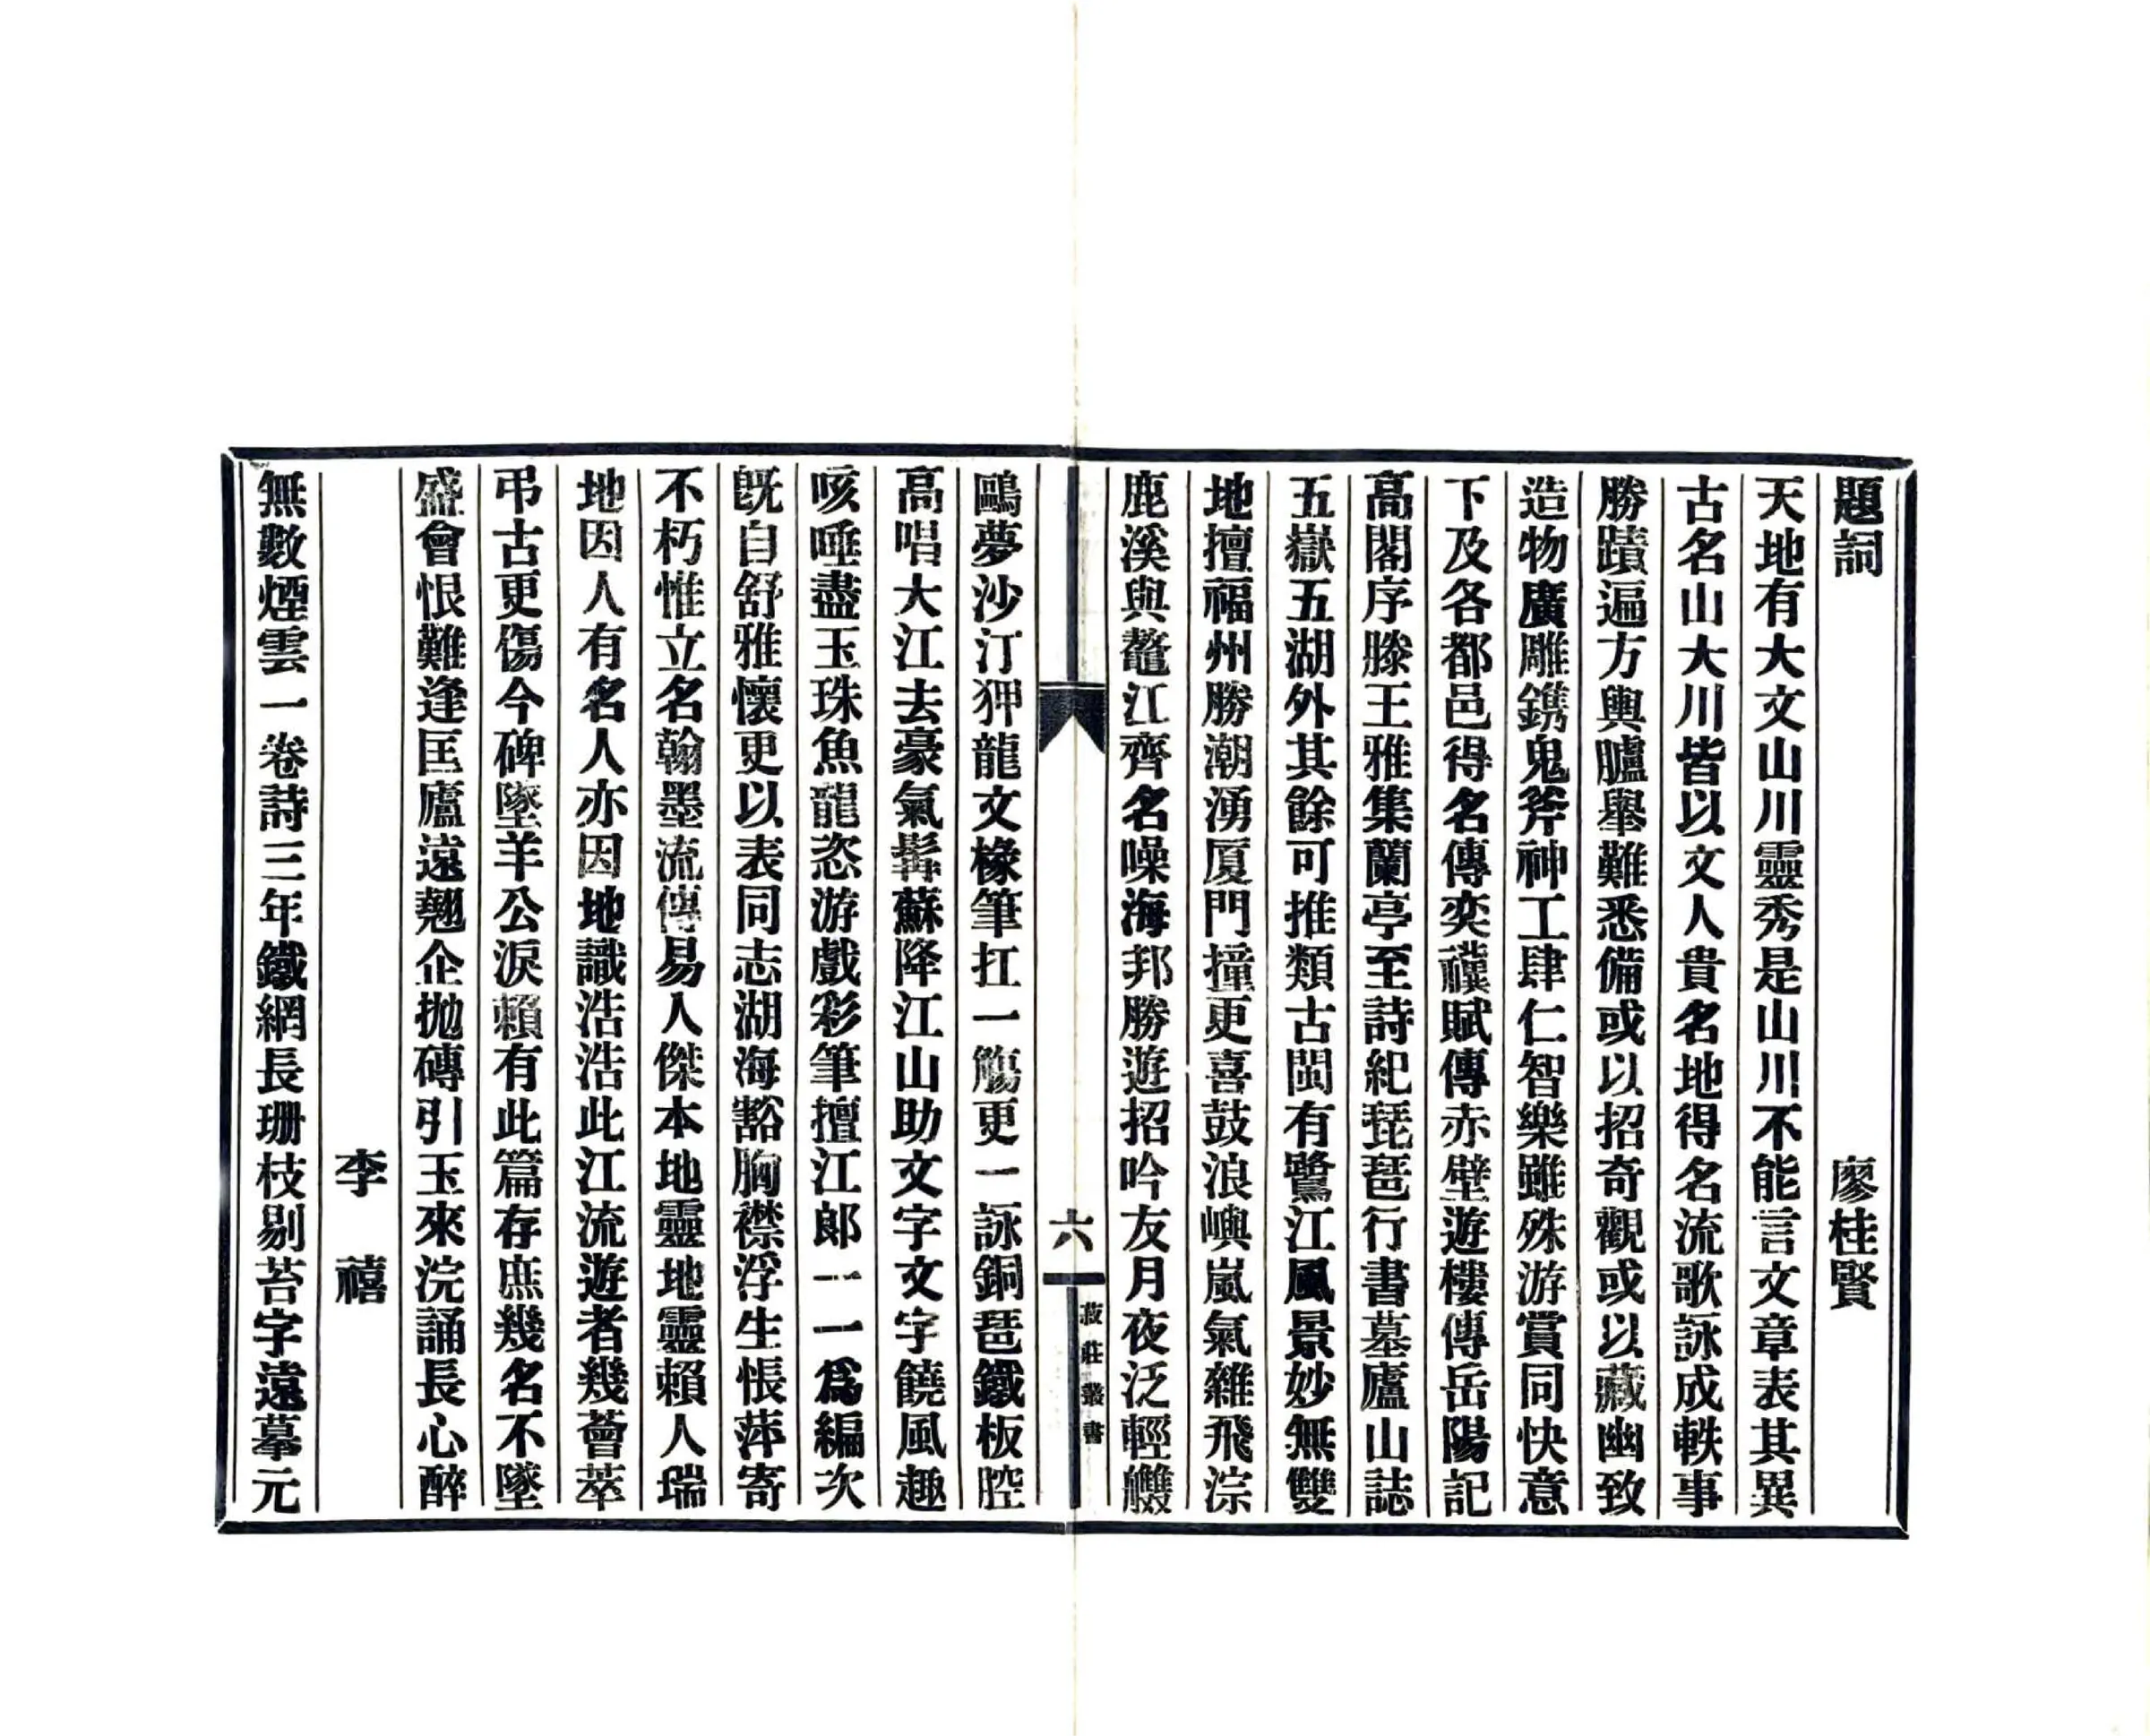 題詞 廖桂賢
天地有大文山川靈秀是山川不能言文章表其異
古名山大川皆以文人貴名地得名流歌詠成軼事
勝蹟遍方輿臚舉難悉備或以招奇觀或以藏幽致
造物廣雕鎸鬼斧神工肆仁智樂雖殊游賞同快意
下及各都邑得名傳奕禩賦傳赤壁遊樓傳岳陽記
高閣序滕王雅集蘭亭至詩紀琵琶行書墓廬山誌
五嶽五湖外其餘可推類古閩有鷺江風景妙無雙
地擅福州勝潮湧厦門撞更喜鼓浪嶼嵐氣雜飛淙
鹿溪與鼇江齊名噪海邦勝遊招吟友月夜泛輕艭
鷗夢沙汀狎龍文椽筆扛一觴更一詠銅琶鐵板腔
高唱大江去豪氣髯蘇降江山助文字文字饒風趣
咳唾盡玉珠魚龍恣游戲彩筆擅江郎一一爲編次
旣自舒雅懷更以表同志湖海豁胸襟浮生悵萍寄
不朽惟立名翰墨流傳易人傑本地靈地靈賴人瑞
地因人有名人亦因地識浩浩此江流遊者幾薈萃
弔古更傷今碑墜羊公淚賴有此篇存庶幾名不墜
盛會恨難逢匡廬遠翹企拋磚引玉來浣誦長心醉
李禧
無數煙雲一卷詩三年鐵網長珊枝剔苔字遠摹元
六
菽莊叢書